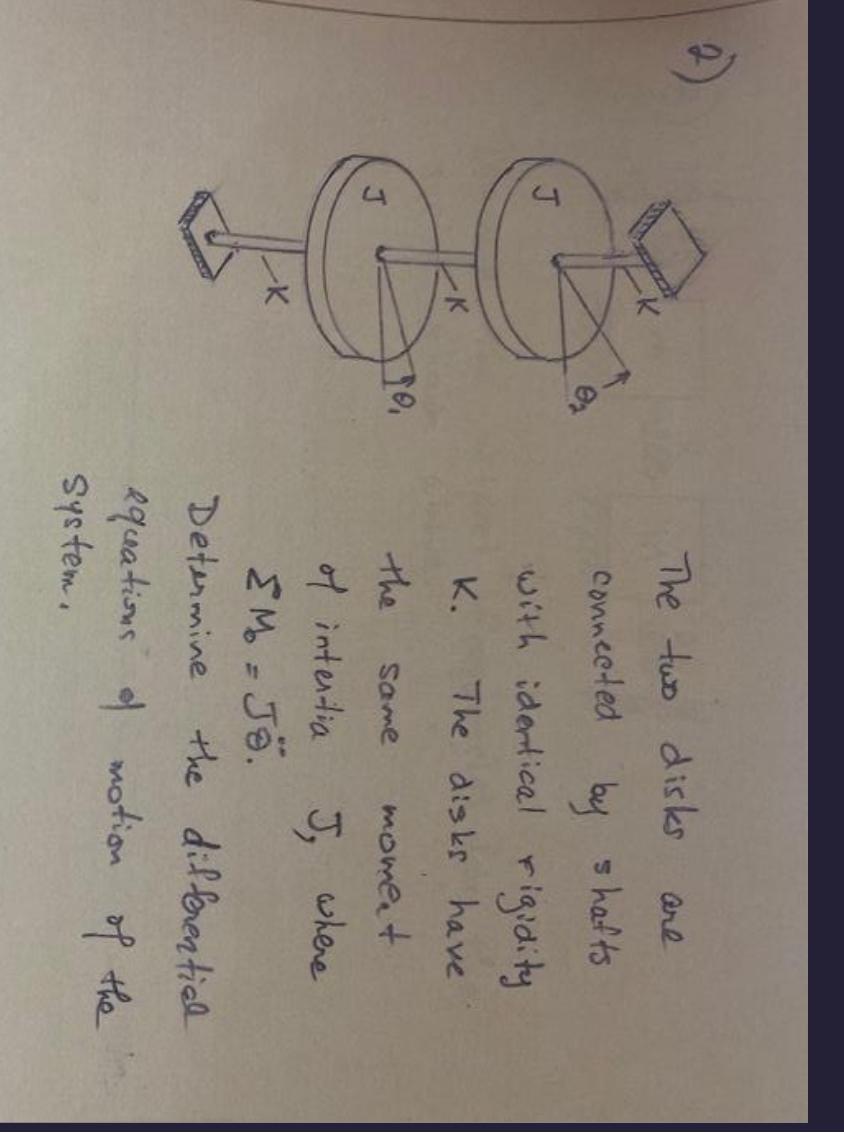 2)
K
θ₂
J
K
θ₁
J
K
The two disks are
connected by shafts
with identical rigidity
K. The disks have
the same moment
of intertia J, where
ΣM₀ = Jθ̈.
Determine the differential
equations of motion of the
system.